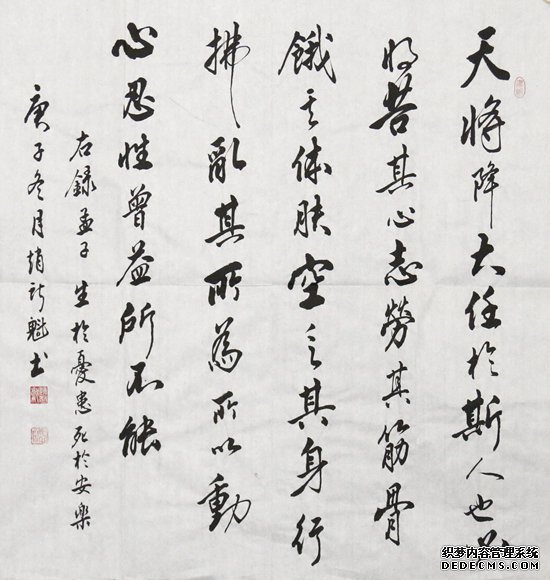 天将降大任於斯人也必
先苦其心志勞其筋骨
餓其体肤空乏其身行
拂亂其所為所以動
心忍性曾益所不能
右録孟子生於憂患死於安樂
庚子冬月趙新魁书
织梦内容管理系统
DEDECMS.COM